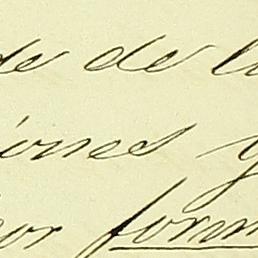 de de l
iones y
or form